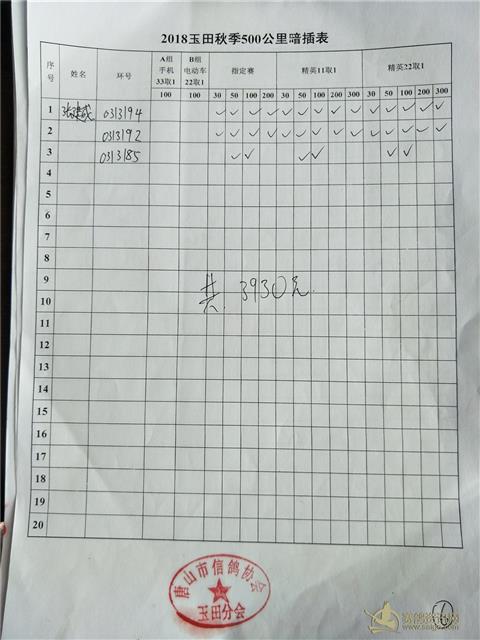 2018玉田秋季500公里暗插表
序号 姓名 环号 A组手机33取1 B组电动车22取1 指定赛 精英11取1 精英22取1
100 100 30 50 100 200 30 50 100 200 300 30 50 100 200 300
1 0313194 ✓ ✓ ✓ ✓ ✓ ✓ ✓ ✓ ✓ ✓ ✓ ✓ ✓ ✓
2 0313192 ✓ ✓ ✓ ✓ ✓ ✓ ✓ ✓ ✓ ✓ ✓ ✓ ✓ ✓
3 0313185 ✓ ✓ ✓ ✓ ✓ ✓
4
5
6
7
8
9
共 3930元
10
11
12
13
14
15
16
17
18
19
20
唐山市信鸽协会
玉田分会